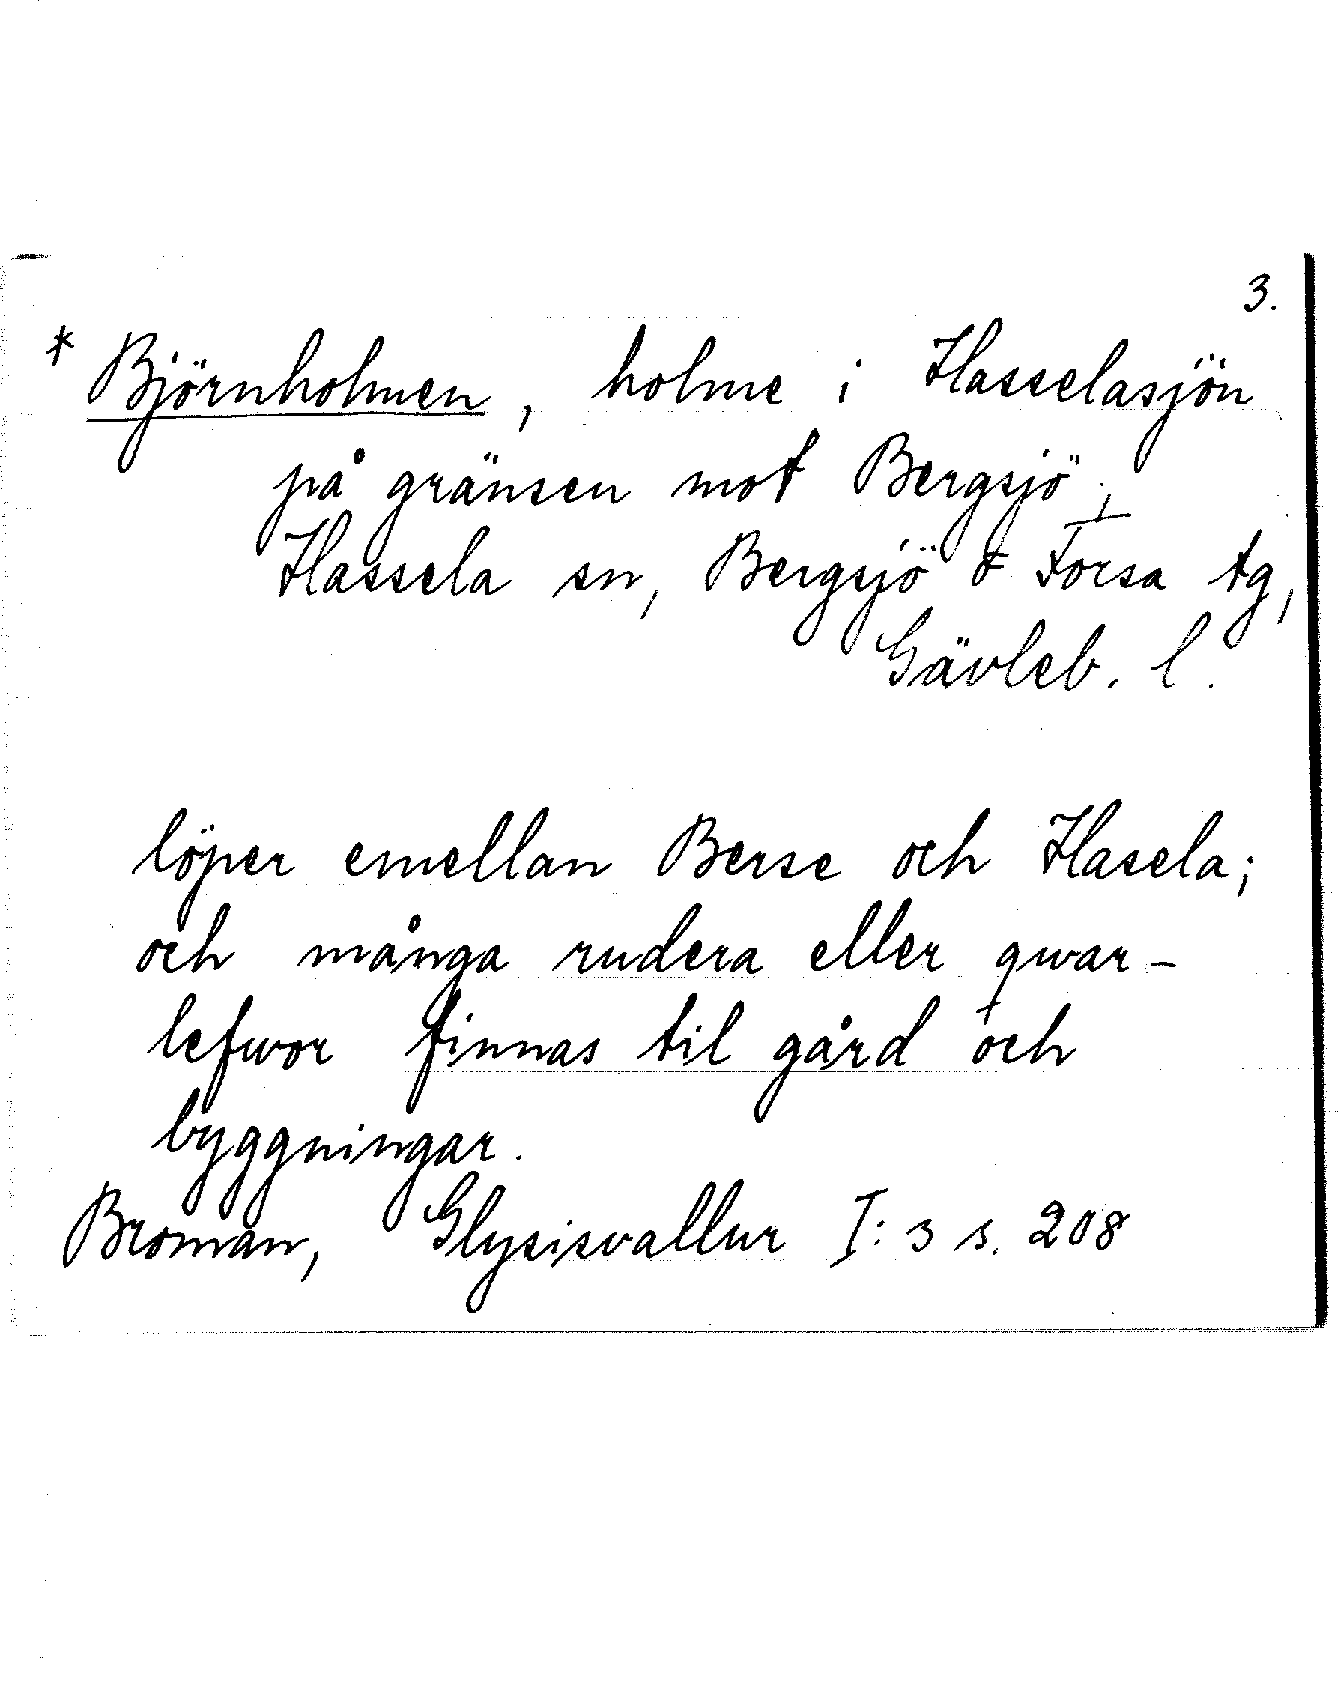 3.
* Björnholmen, holme i Hasselasjön
på gränsen mot Bergsjö,
Hassela sn, Bergsjö o Forsa tg,
Gävleb. l.
löper emellan Berse och Hasela;
och många rudera eller qwar-
lefwor finnas til gård och
byggningar.
Broman, Glysisvallur I:3 s. 208